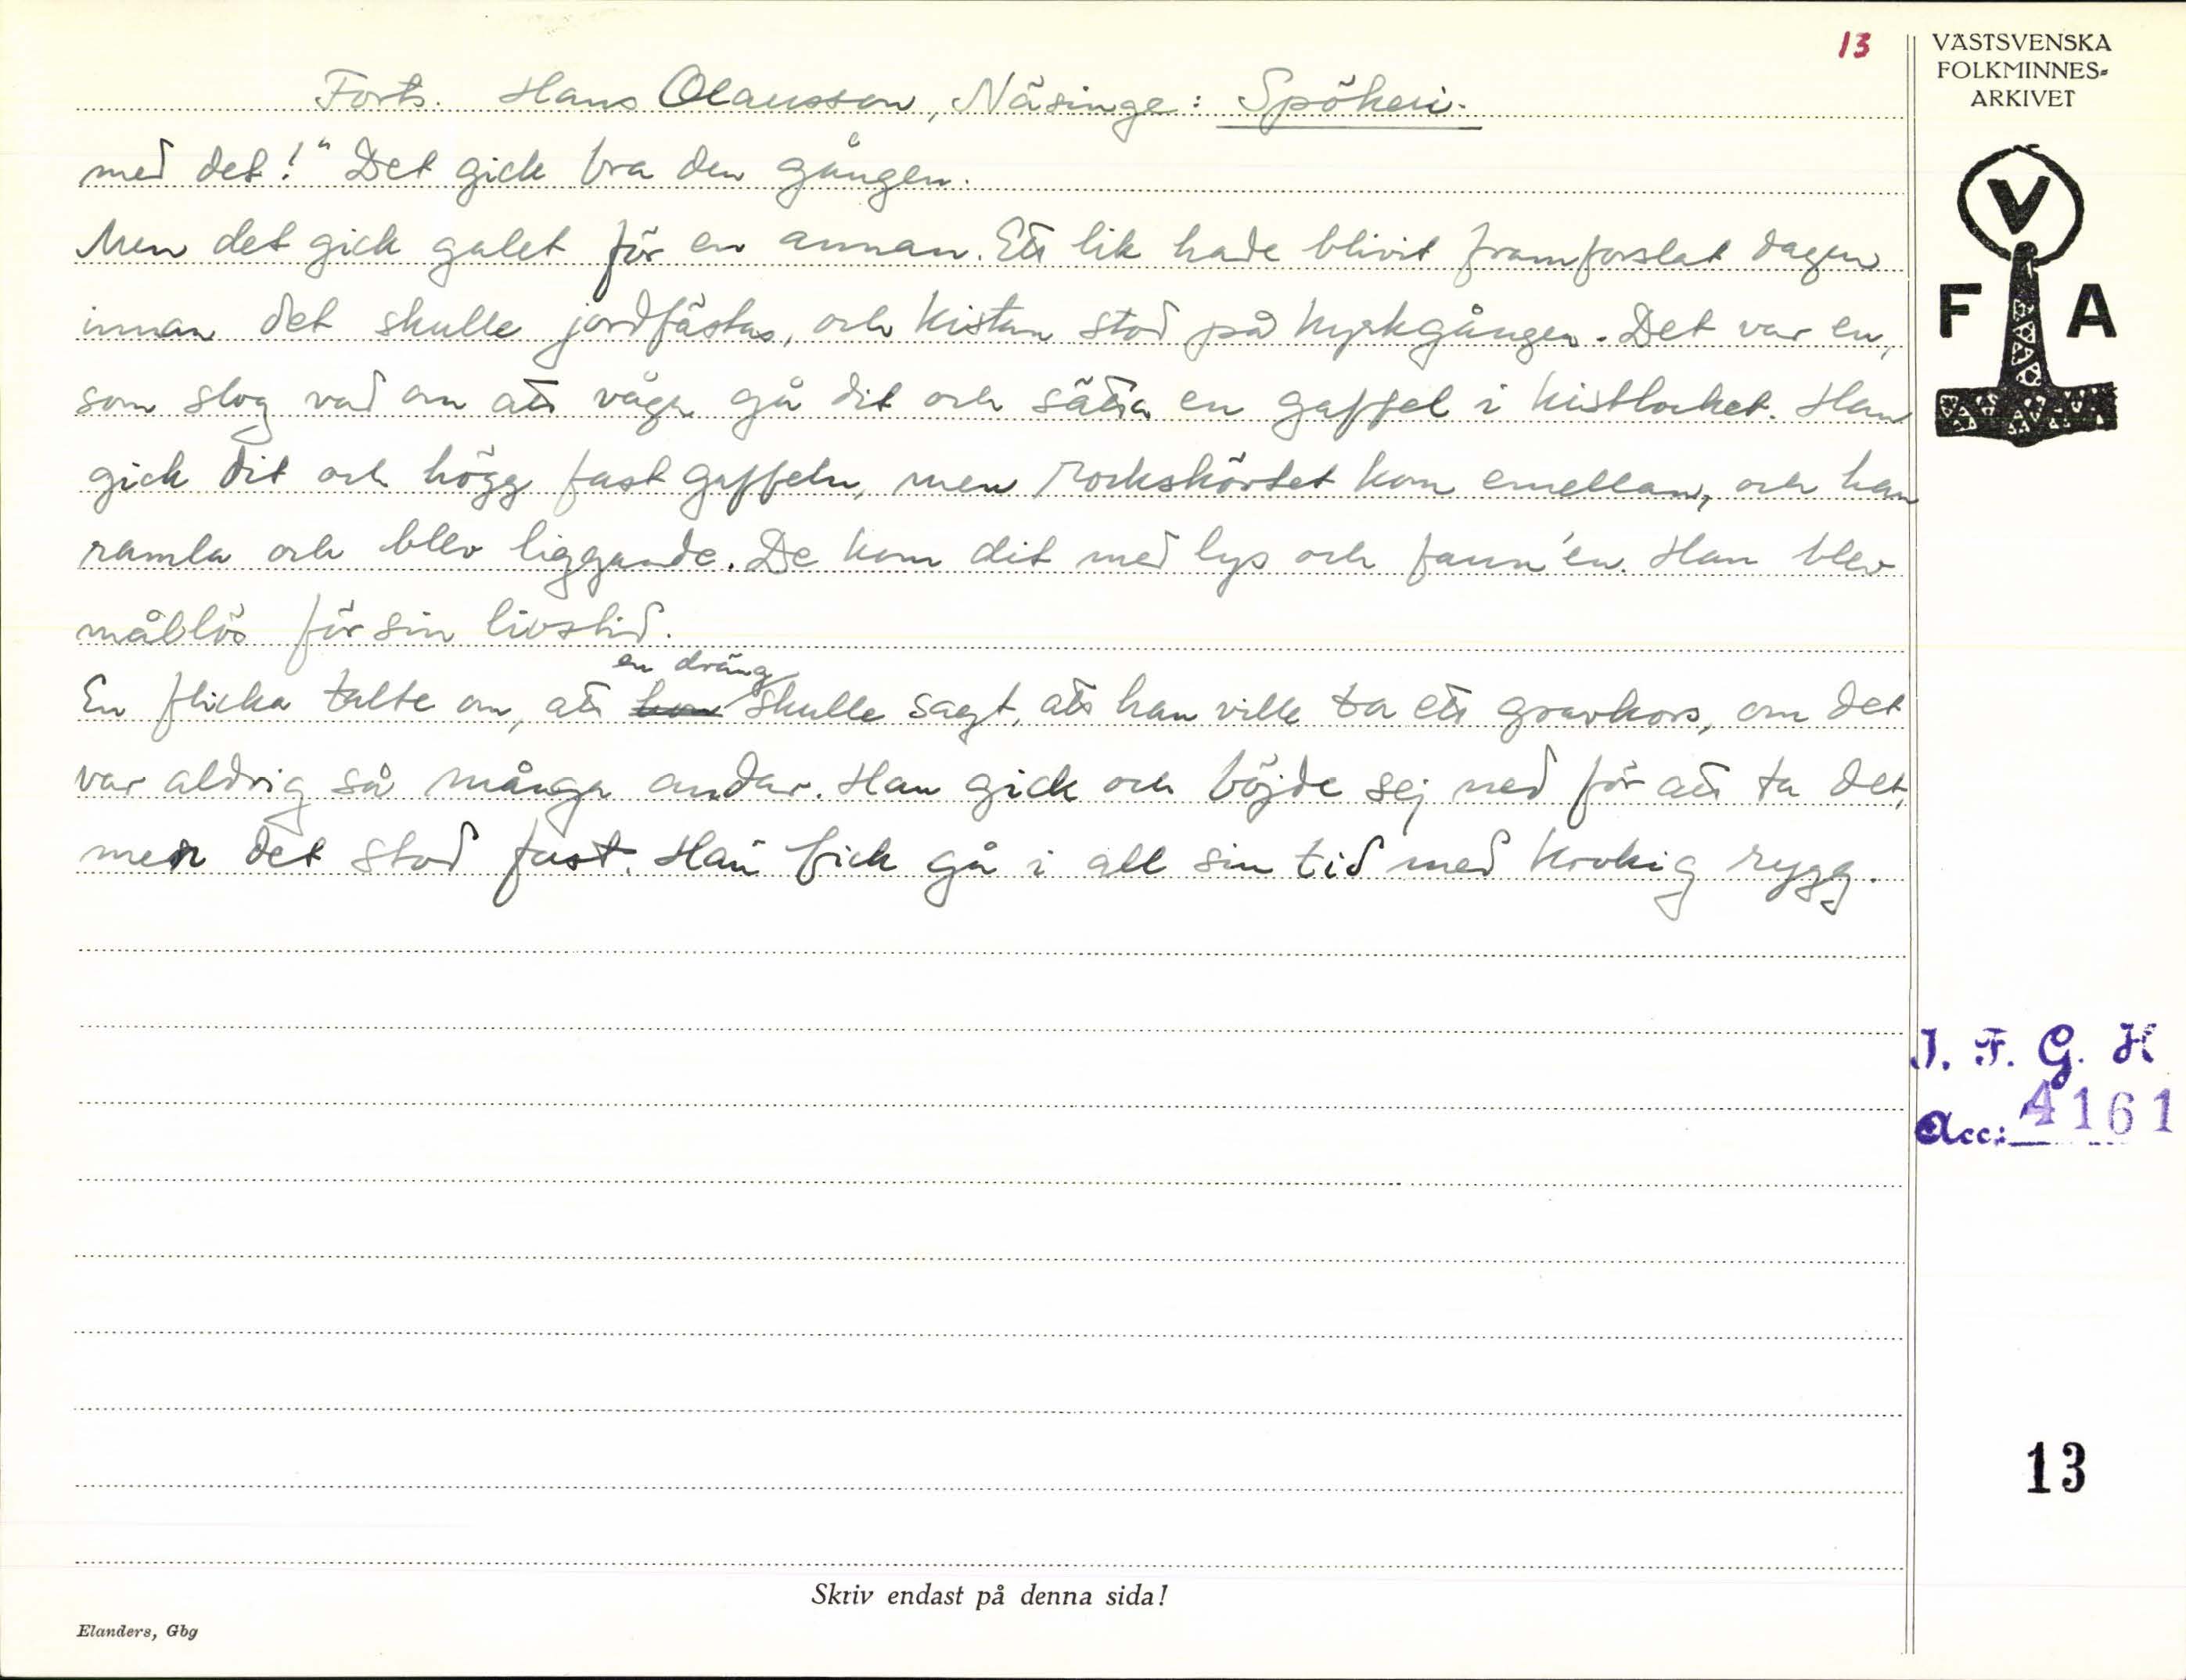 13
VÄSTSVENSKA
FOLKMINNES-
ARKIVET
V
F A
Forts. Hans Olausson, Näsinge: Spökeri.
med det!" Det gick bra den gången.
Men det gick galet för en annan. Ett lik hade blivit framforslat dagen
innan det skulle jordfästas, och kistan stod på kyrkgången. Det var en,
som slog vad om att våga gå dit och sätta en gaffel i kistlocket. Han
gick dit och högg fast gaffeln, men rockskörtet kom emellan, och han
ramla och blev liggande. De kom dit med lys och fann'en. Han blev
mållös för sin livstid.
en dräng
En flicka talte om, att hon skulle sagt, att han ville ta ett gravkors, om det
var aldrig så många andar. Han gick och böjde sej ned för att ta det,
men det stod fast. Han fick gå i all sin tid med krokig rygg.
I. F. G. H
Acc: 4161
13
Skriv endast på denna sida!
Elanders, Gbg